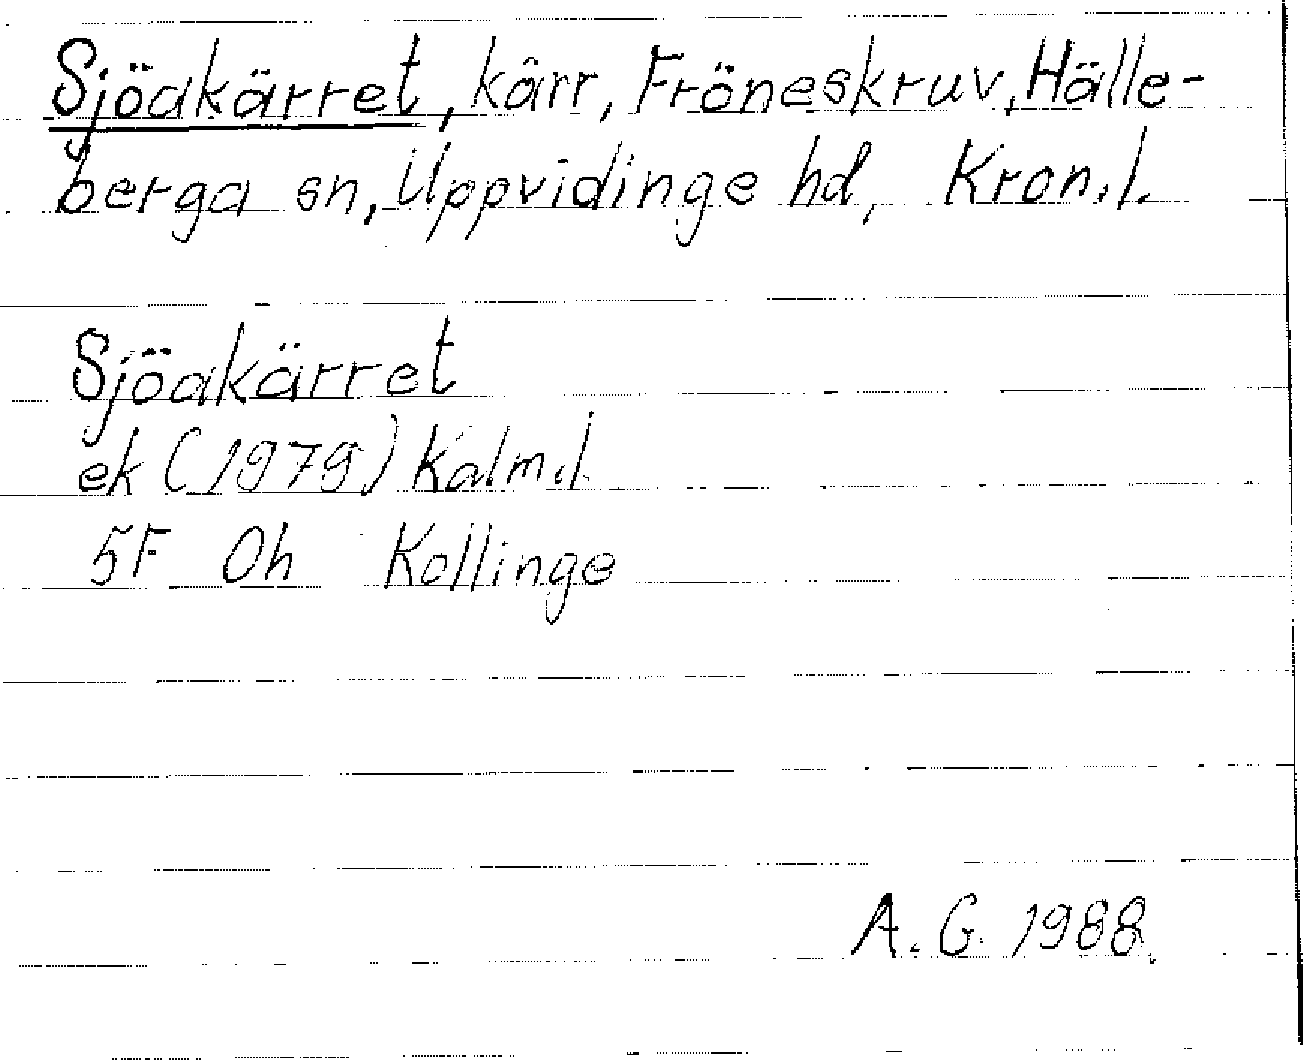 Sjöakärret, kärr, Fröneskruv, Hälle-
berga sn, Uppvidinge hd, Kron.l.
Sjöakärret
ek (1979) Kalm.l.
5F 0h Kollinge
A.G. 1988.